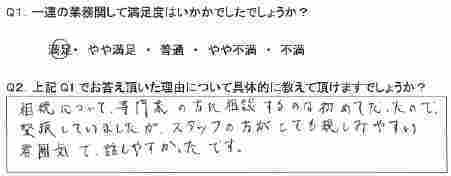 Q1. 一連の業務関して満足度はいかかでしたでしょうか?
満足・ やや満足 ・ 普通 ・ やや不満 ・ 不満
Q2. 上記Q1でお答え頂いた理由について具体的に教えて頂けますでしょうか?
相続について、専門家の方に相談するのは初めてだったので、
緊張していましたが、スタッフの方がとても親しみやすい
雰囲気で、話しやすかったです。